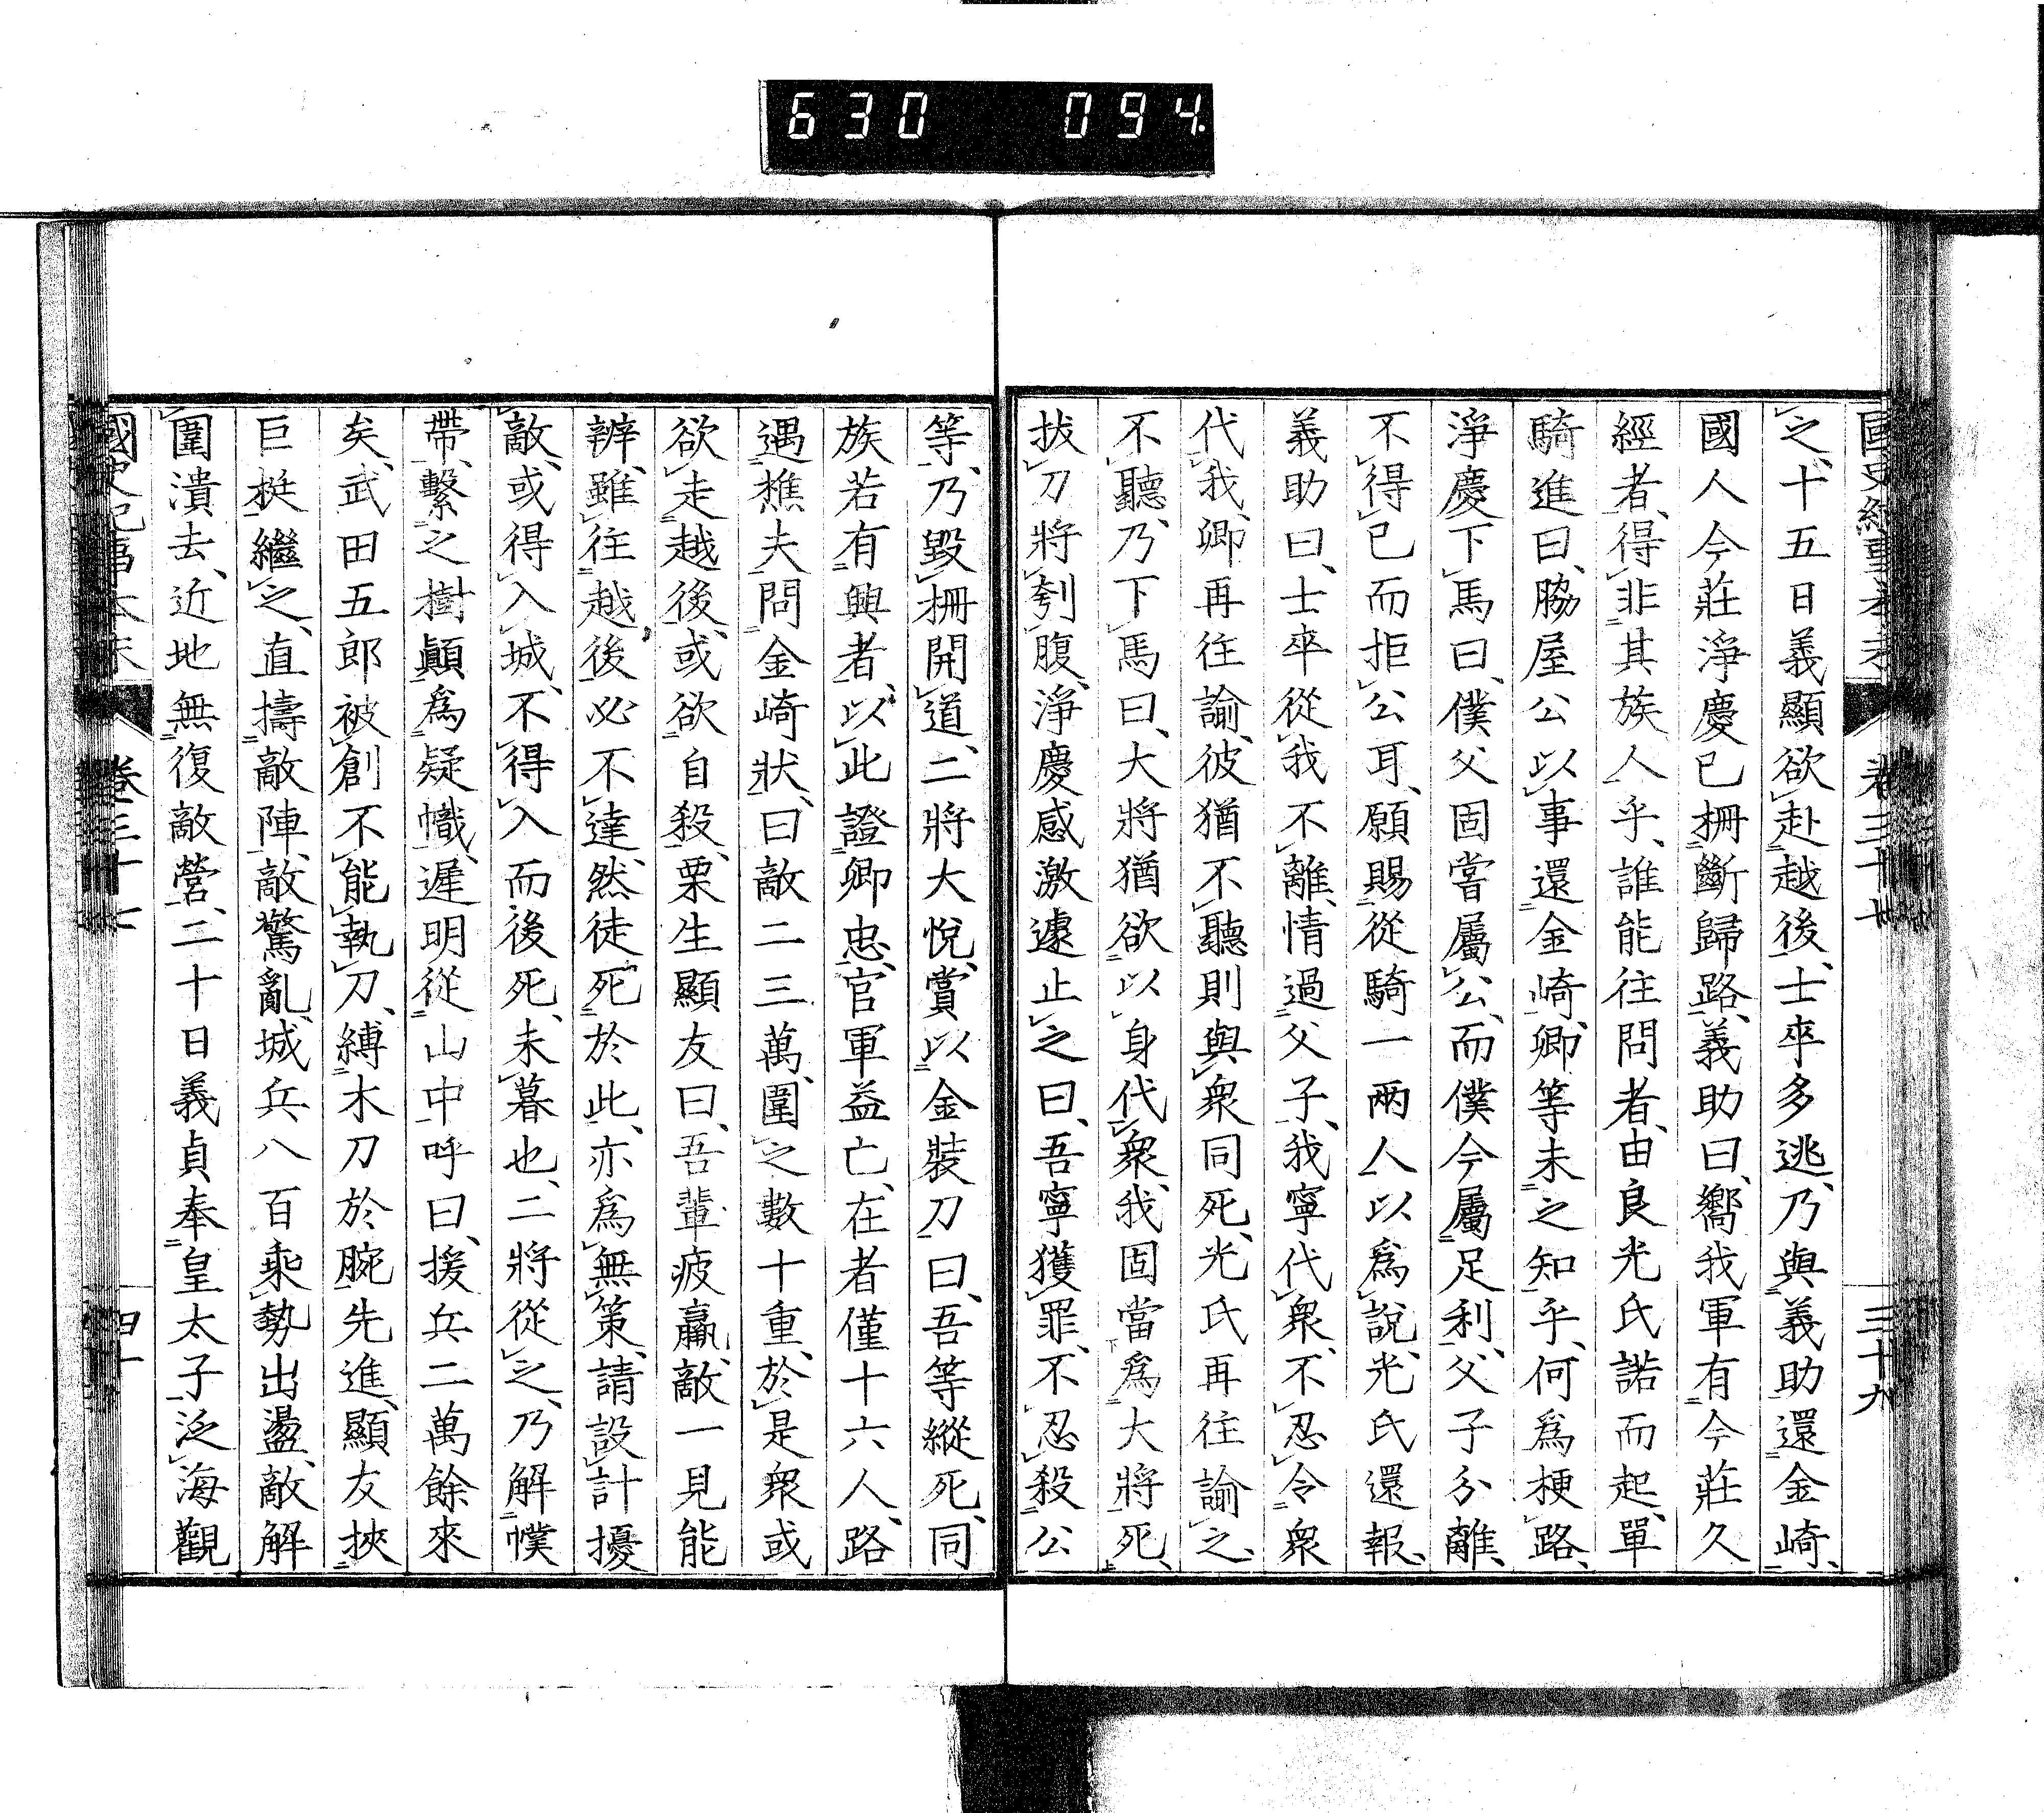 630 094
之、十五日義顯欲赴越後、士卒多逃、乃與義助還金崎、
國人今莊淨慶已柵斷歸路、義助曰、嚮我軍有今莊久
經者、得非其族人乎、誰能往問者、由良光氏諾而起、單
騎進曰、脇屋公以事還金崎、卿等未之知乎、何爲梗路、
淨慶下馬曰、僕父固嘗屬公、而僕今屬足利、父子分離、
不得已而拒公耳、願賜從騎一兩人以爲說、光氏還報、
義助曰、士卒從我不離、情過父子、我寧代衆、不忍令衆
代我、卿再往諭、彼猶不聽則與衆同死、光氏再往諭之、
不聽、乃下馬曰、大將猶欲以身代衆、我固當爲大將死、
拔刀將刳腹、淨慶感激遽止之曰、吾寧獲罪、不忍殺公
三十九
等、乃毀柵開道、二將大悅、賞以金裝刀曰、吾等縱死、同
族若有興者、以此證卿忠、官軍益亡、在者僅十六人、路
遇樵夫問金崎狀、曰敵二三萬、圍之數十重、於是衆或
欲走越後、或欲自殺、栗生顯友曰、吾輩疲羸、敵一見能
辨、雖往越後必不達、然徒死於此、亦爲無策、請設計擾
敵、或得入城、不得入而後死、未暮也、二將從之、乃解幞
帶、繫之樹顚爲疑幟、遲明從山中呼曰、援兵二萬餘來
矣、武田五郎被創不能執刀、縛木刀於腕先進、顯友挾
巨梃繼之、直擣敵陣、敵驚亂、城兵八百乘勢出盪、敵解
圍潰去、近地無復敵營、二十日義貞奉皇太子泛海觀
國史紀事本末 卷三十七 四十